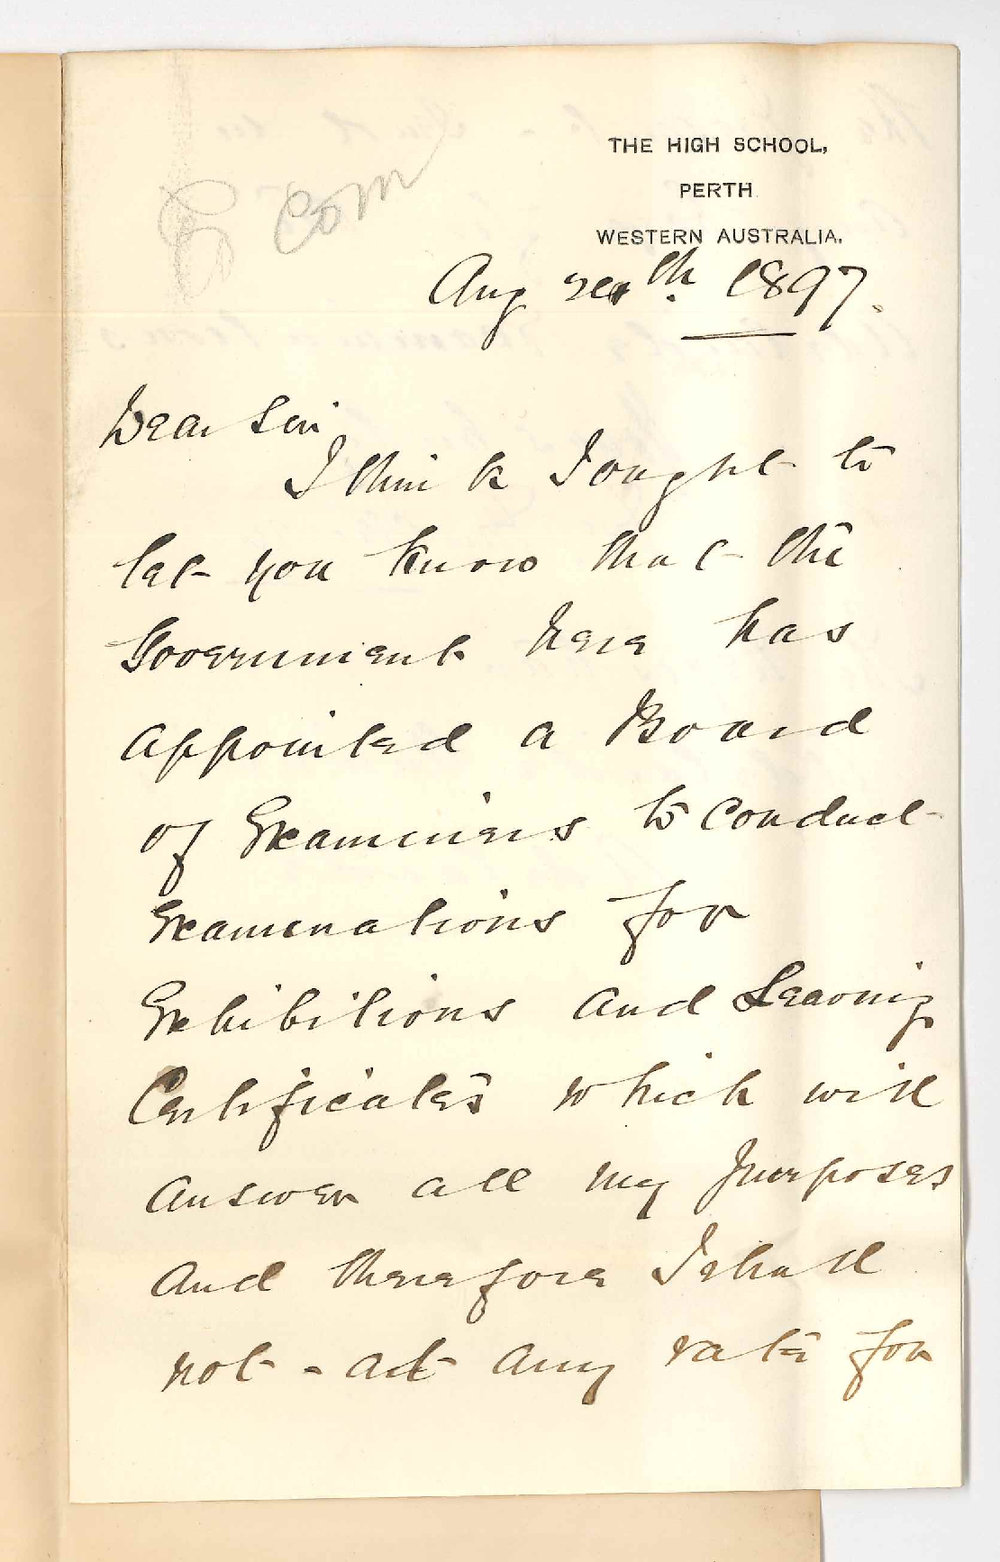 THE HIGH SCHOOL,
PERTH
WESTERN AUSTRALIA.
Com
Aug th 1897.
Dear Sir
I think I ought to
let you know that the
Government here has
appointed a Board
of Examiners to conduct
Examinations for
Exhibitions and Leaving
Certificates which will
answer all my purposes
and therefore I shall
not - at any rate for